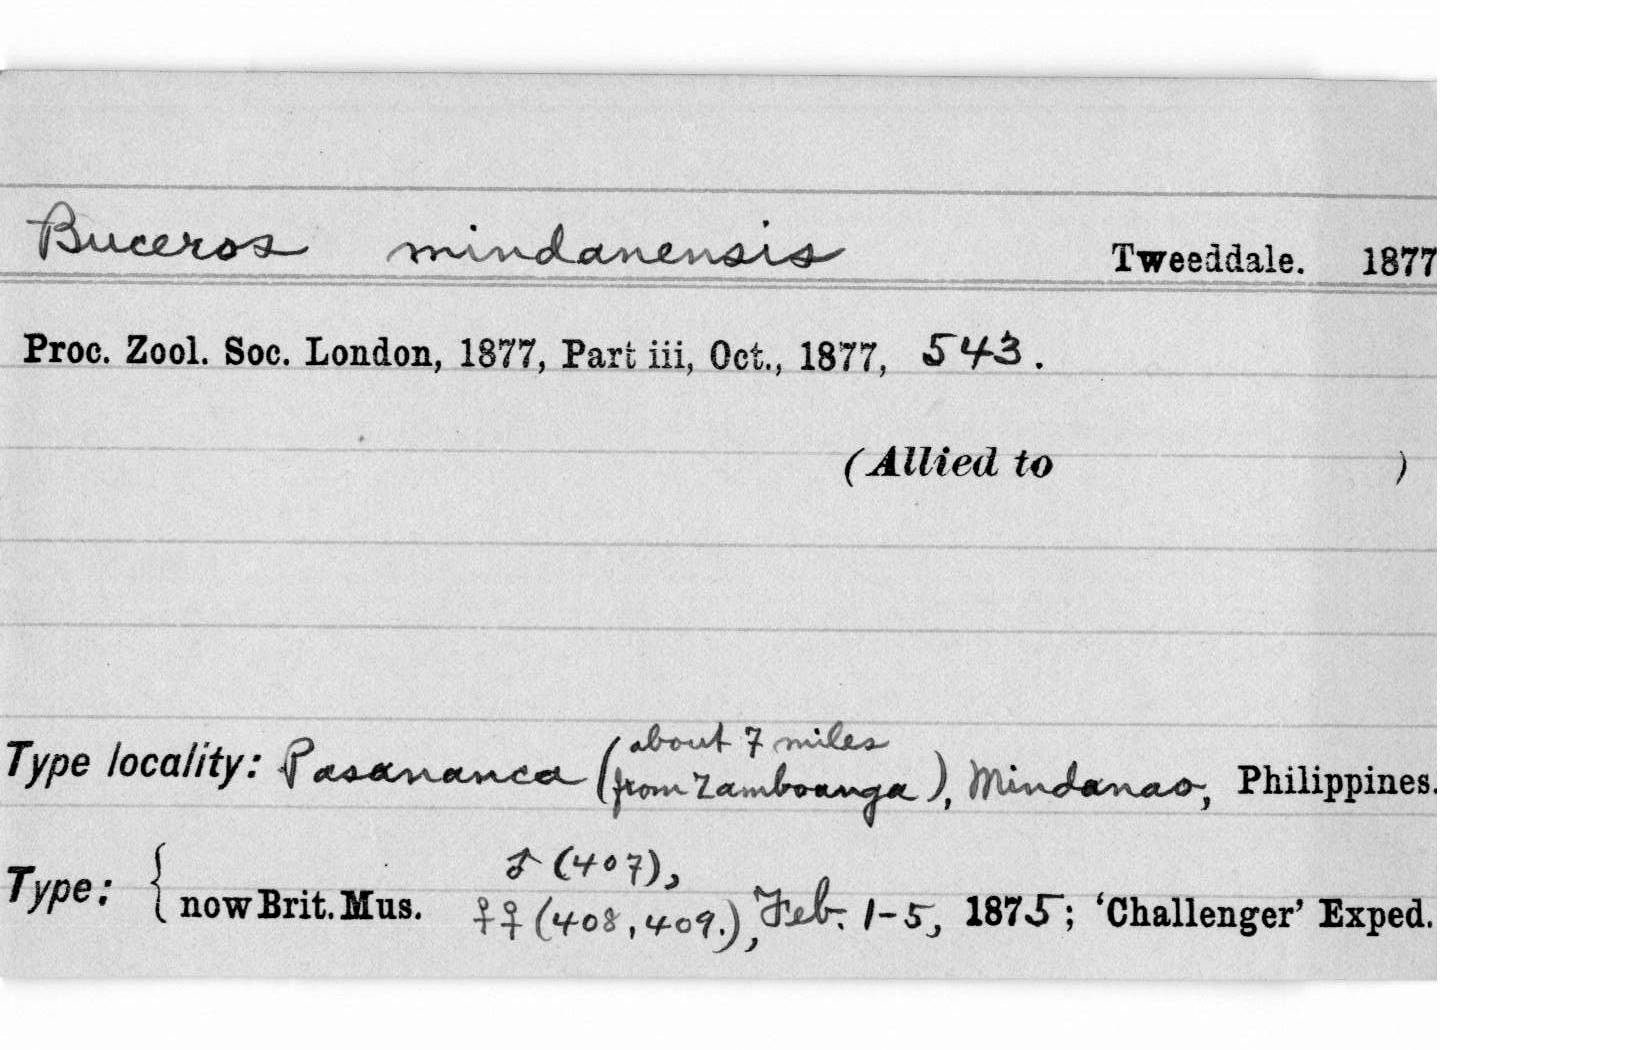 Buceros mindanensis Tweeddale. 1877
Proc. Zool. Soc. London, 1877, Part iii, Oct., 1877, 543.
(Allied to )
Type locality: Pasananca (about 7 miles from Zamboanga), Mindanao, Philippines.
Type: { now Brit. Mus. ♂ (407),
♀♀ (408, 409.), Feb. 1-5, 1875; ‘Challenger’ Exped.